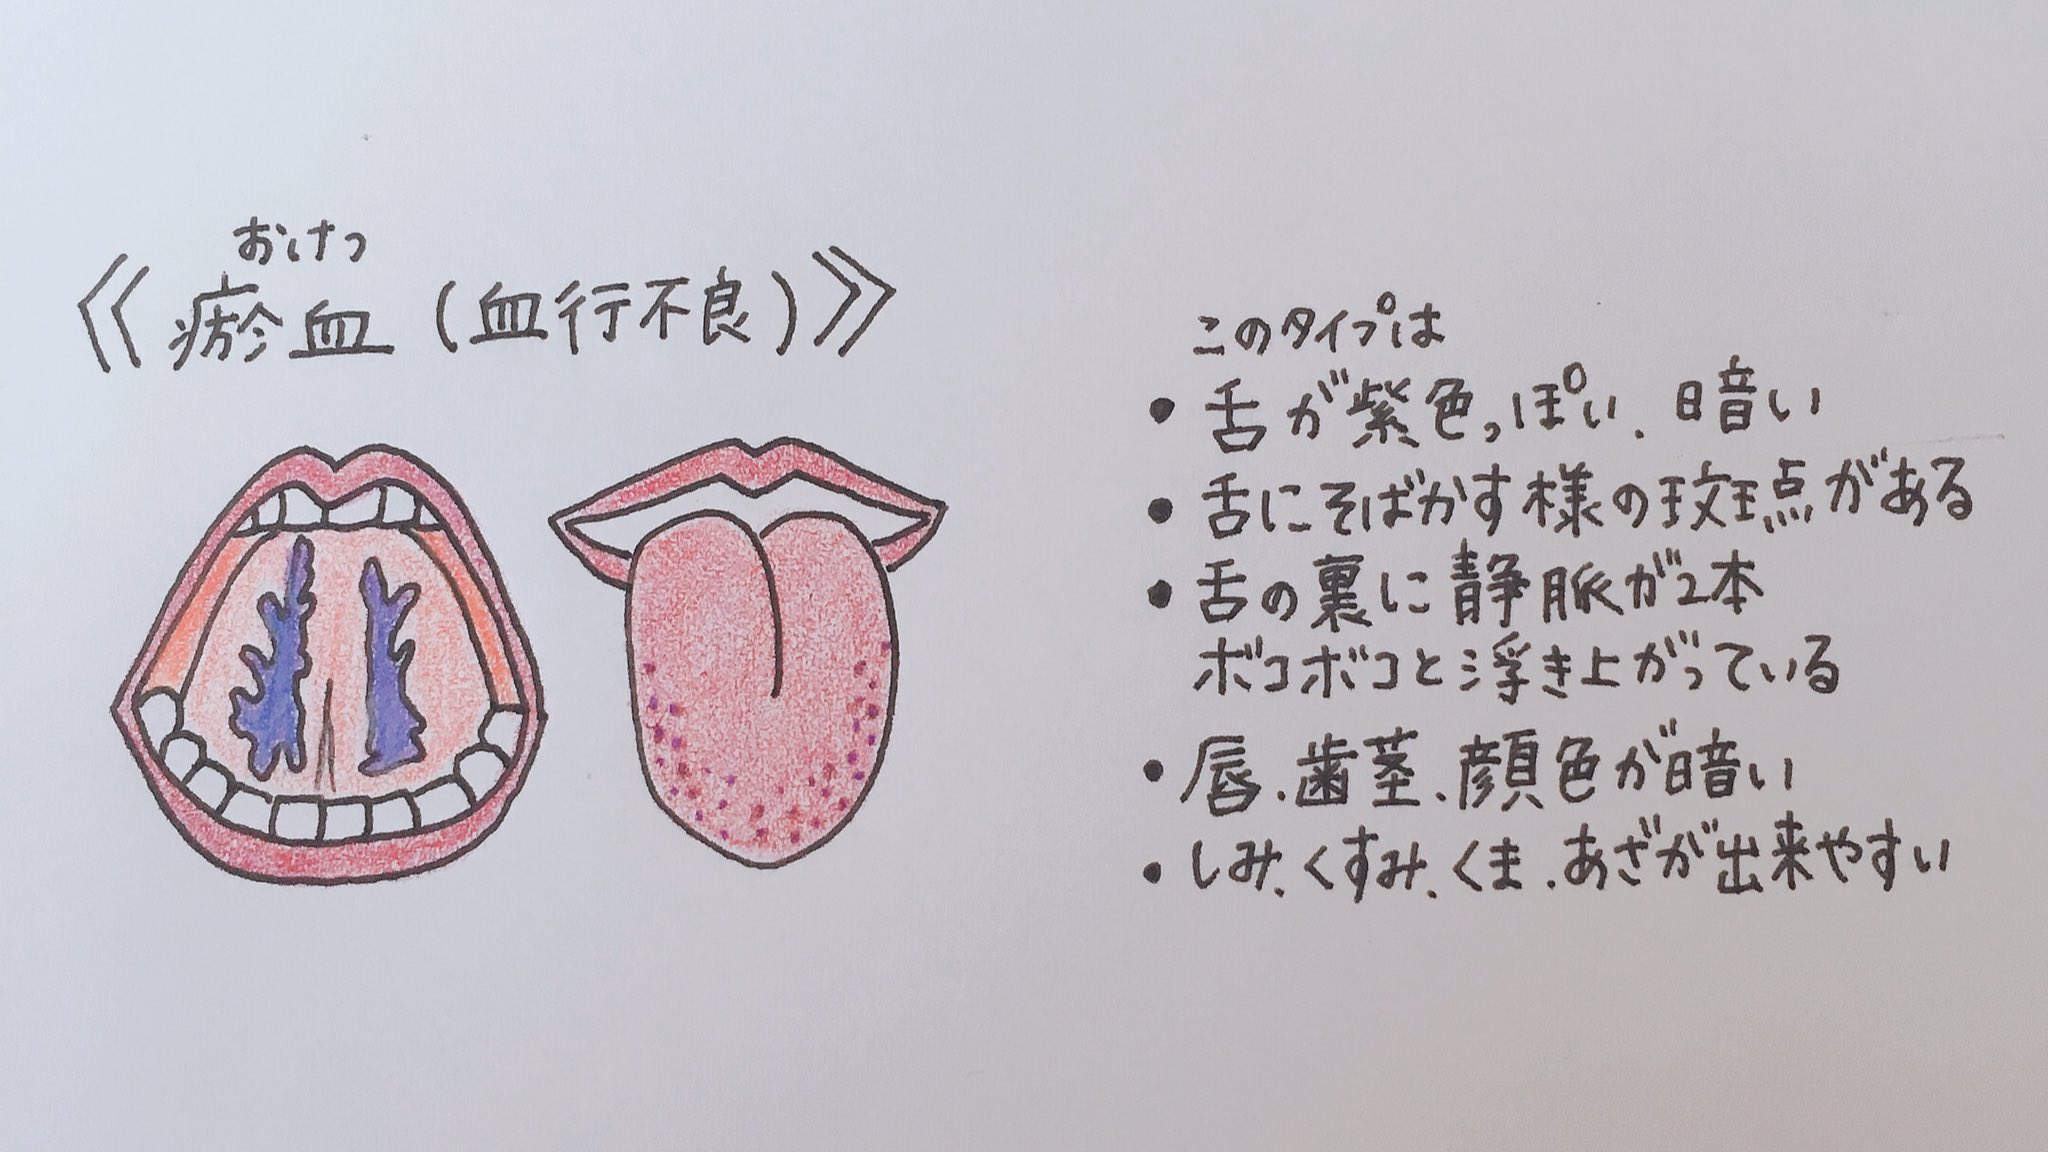 おけつ
《瘀血(血行不良)》
このタイプは
・舌が紫色っぽい、暗い
・舌にそばかす様の斑点がある
・舌の裏に静脈が2本
ボコボコと浮き上がっている
・唇、歯茎、顔色が暗い
・しみ、くすみ、くま、あざが出来やすい